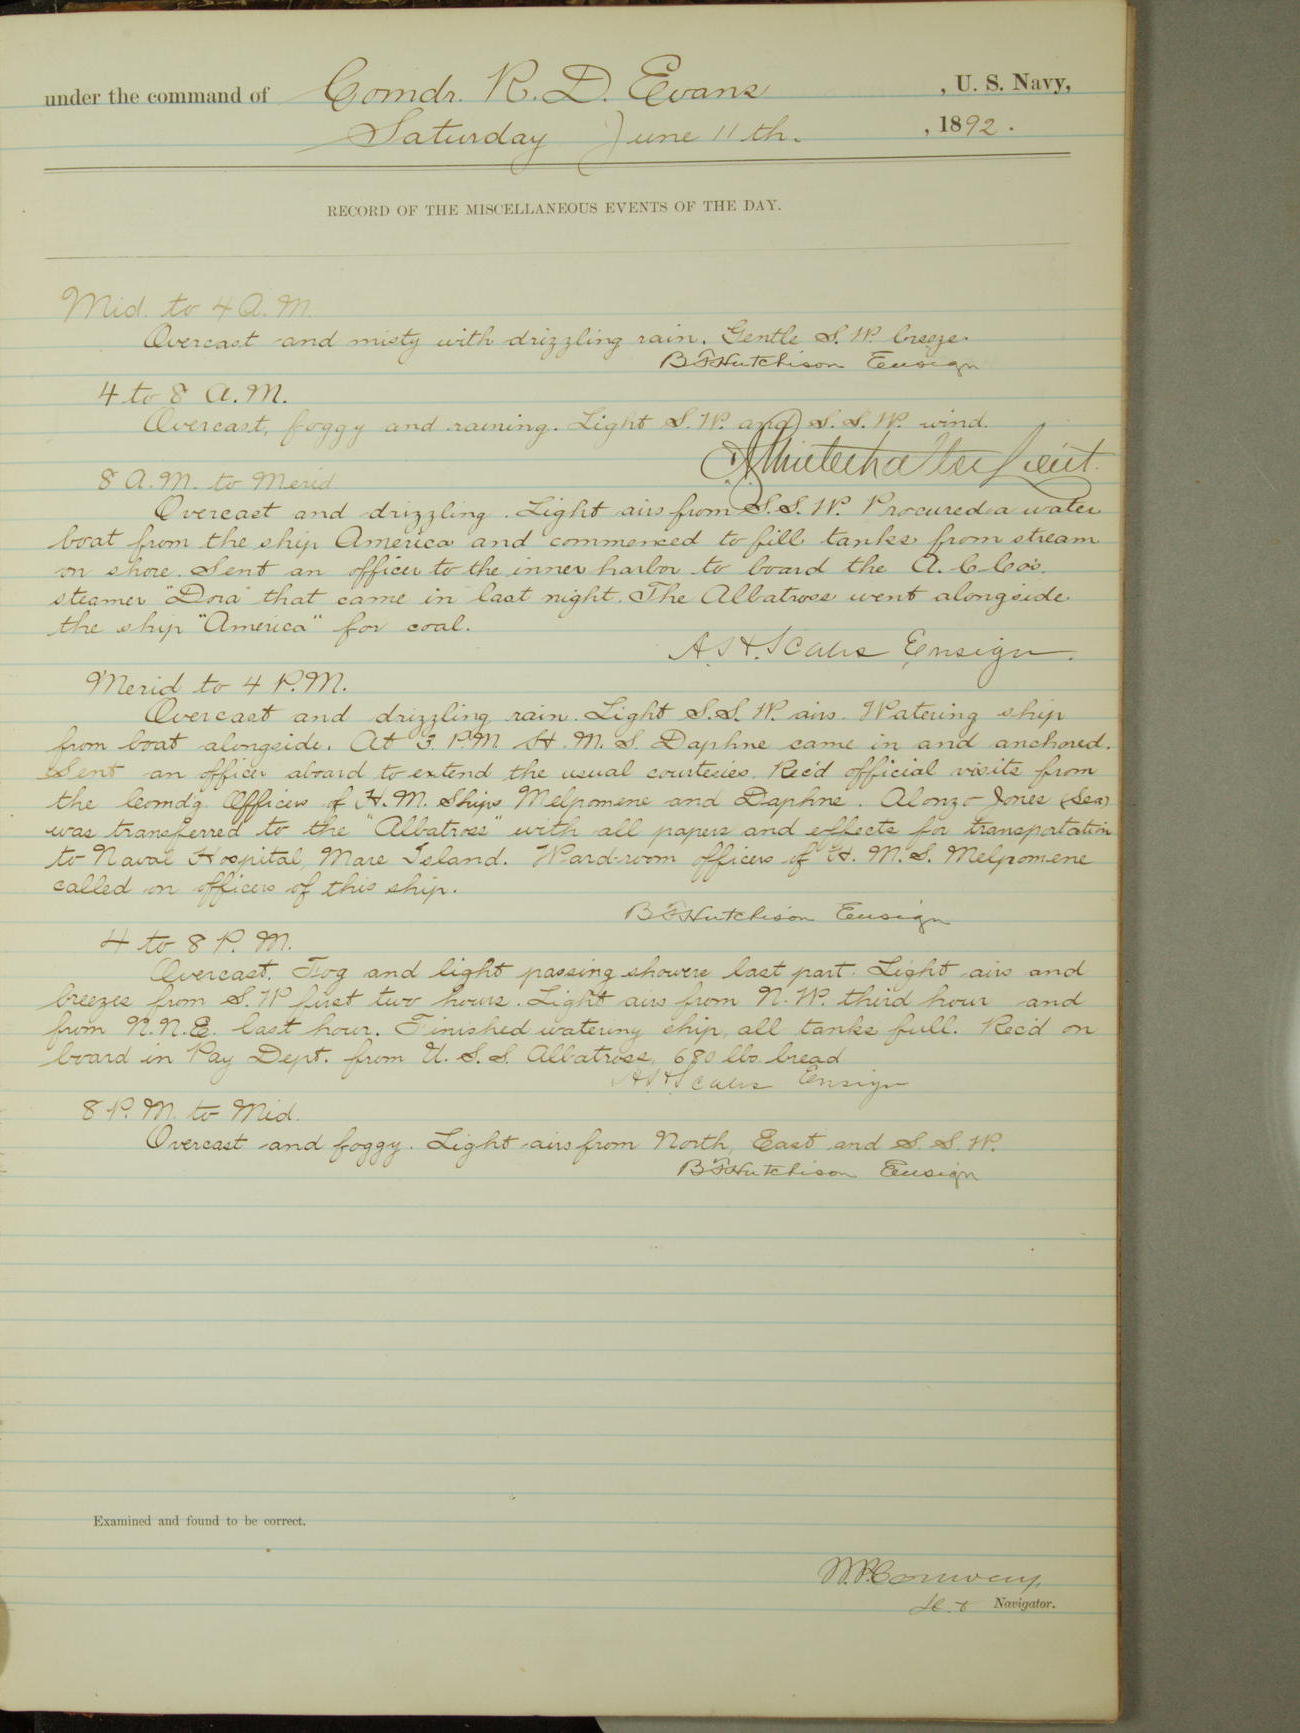 under the command of Comdr. R. D. Evans , U. S. Navy,
Saturday June 11th. , 1892.
RECORD OF THE MISCELLANEOUS EVENTS OF THE DAY.
Mid. to 4 A.M.
Overcast and misty with drizzling rain. Gentle S.W. breeze.
B F Hutchison Ensign
4 to 8 A.M.
Overcast, foggy and raining. Light S.W. and S.S.W. wind.
Lieut.
8 A.M. to Merid
Overcast and drizzling. Light airs from S.S.W. Procured a water
boat from the ship America and commenced to fill tanks from stream
on shore. Sent an officer to the inner harbor to board the A. C. Co's.
steamer "Dora" that came in last night. The Albatross went alongside
the ship "America" for coal.
Ensign.
Merid to 4 P.M.
Overcast and drizzling rain. Light S.S.W. airs. Watering ship
from boat alongside. At 3 P.M. H.M.S. Daphne came in and anchored.
Sent an officer aboard to extend the usual courtesies. Rec'd official visits from
the Comd'g Officers of H.M. Ships Melpomene and Daphne. Alonzo Jones (Sea)
was transferred to the "Albatross" with all papers and effects for transportation
to Naval Hospital, Mare Island. Ward-room officers of H.M.S. Melpomene
called on officers of this ship.
B F Hutchison Ensign
4 to 8 P.M.
Overcast. Fog and light passing showers last part. Light airs and
breezes from S.W first two hours. Light airs from N.W. third hour and
from N.N.E. last hour. Finished watering ship, all tanks full. Rec'd on
board in Pay Dept. from U.S.S. Albatross, 680 lbs bread
Ensign
8 P.M. to Mid.
Overcast and foggy. Light airs from North, East and S.S.W.
B F Hutchison Ensign
Examined and found to be correct.
Conway
Navigator.